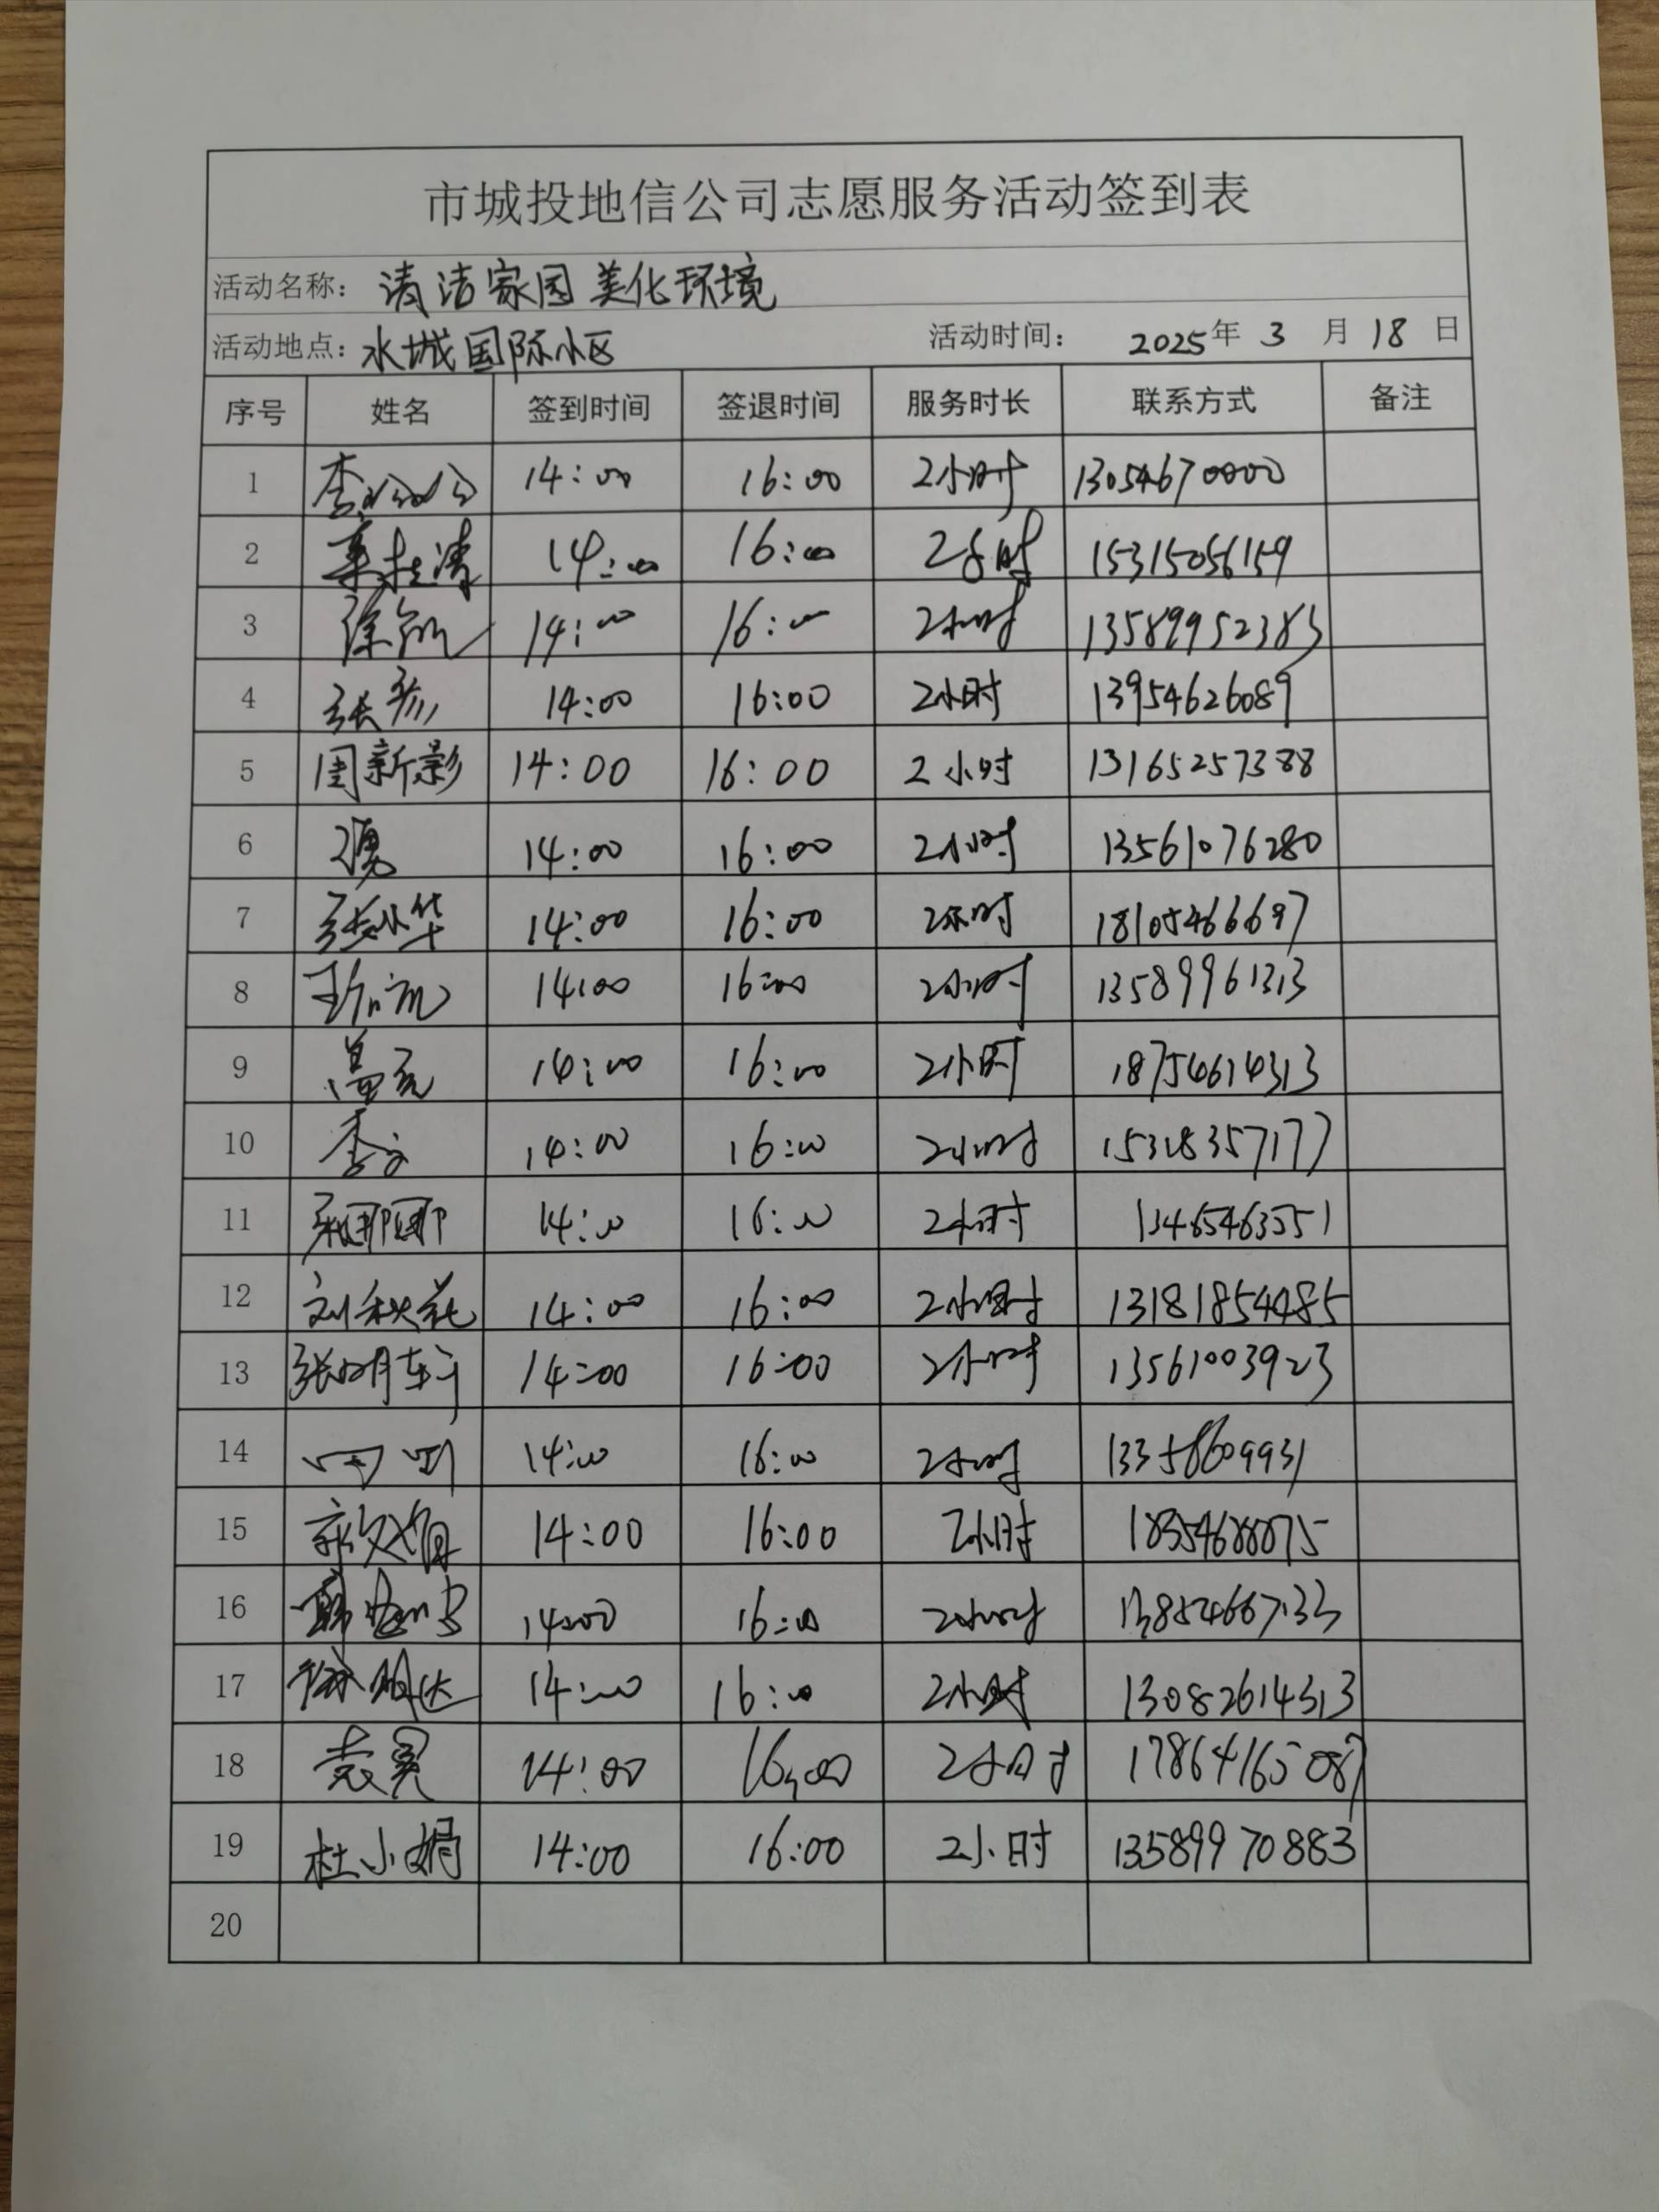 市城投地信公司志愿服务活动签到表
活动名称： 清洁家园美化环境
活动地点： 水城国际小区 活动时间： 2025年 3 月 18 日
序号 姓名 签到时间 签退时间 服务时长 联系方式 备注
1 14:00 16:00 2小时 13054670000
2 14:00 16:00 2小时 15315056159
3 14:00 16:00 2小时 13589952383
4 14:00 16:00 2小时 13954626089
5 周新影 14:00 16:00 2小时 13165257388
6 14:00 16:00 2小时 13561076280
7 张小华 14:00 16:00 2小时 18105466697
8 14:00 16:00 2小时 13589961313
9 14:00 16:00 2小时 18754614313
10 李文 14:00 16:00 2小时 15318357177
11 14:00 16:00 2小时 13465463551
12 刘秋花 14:00 16:00 2小时 13181854485
13 14:00 16:00 2小时 13561003923
14 14:00 16:00 2小时
15 14:00 16:00 2小时 18354688875
16 14:00 16:00 2小时 13854667133
17 徐明达 14:00 16:00 2小时 13082614313
18 14:00 16:00 2小时 17864165087
19 杜小娟 14:00 16:00 2小时 13589970883
20